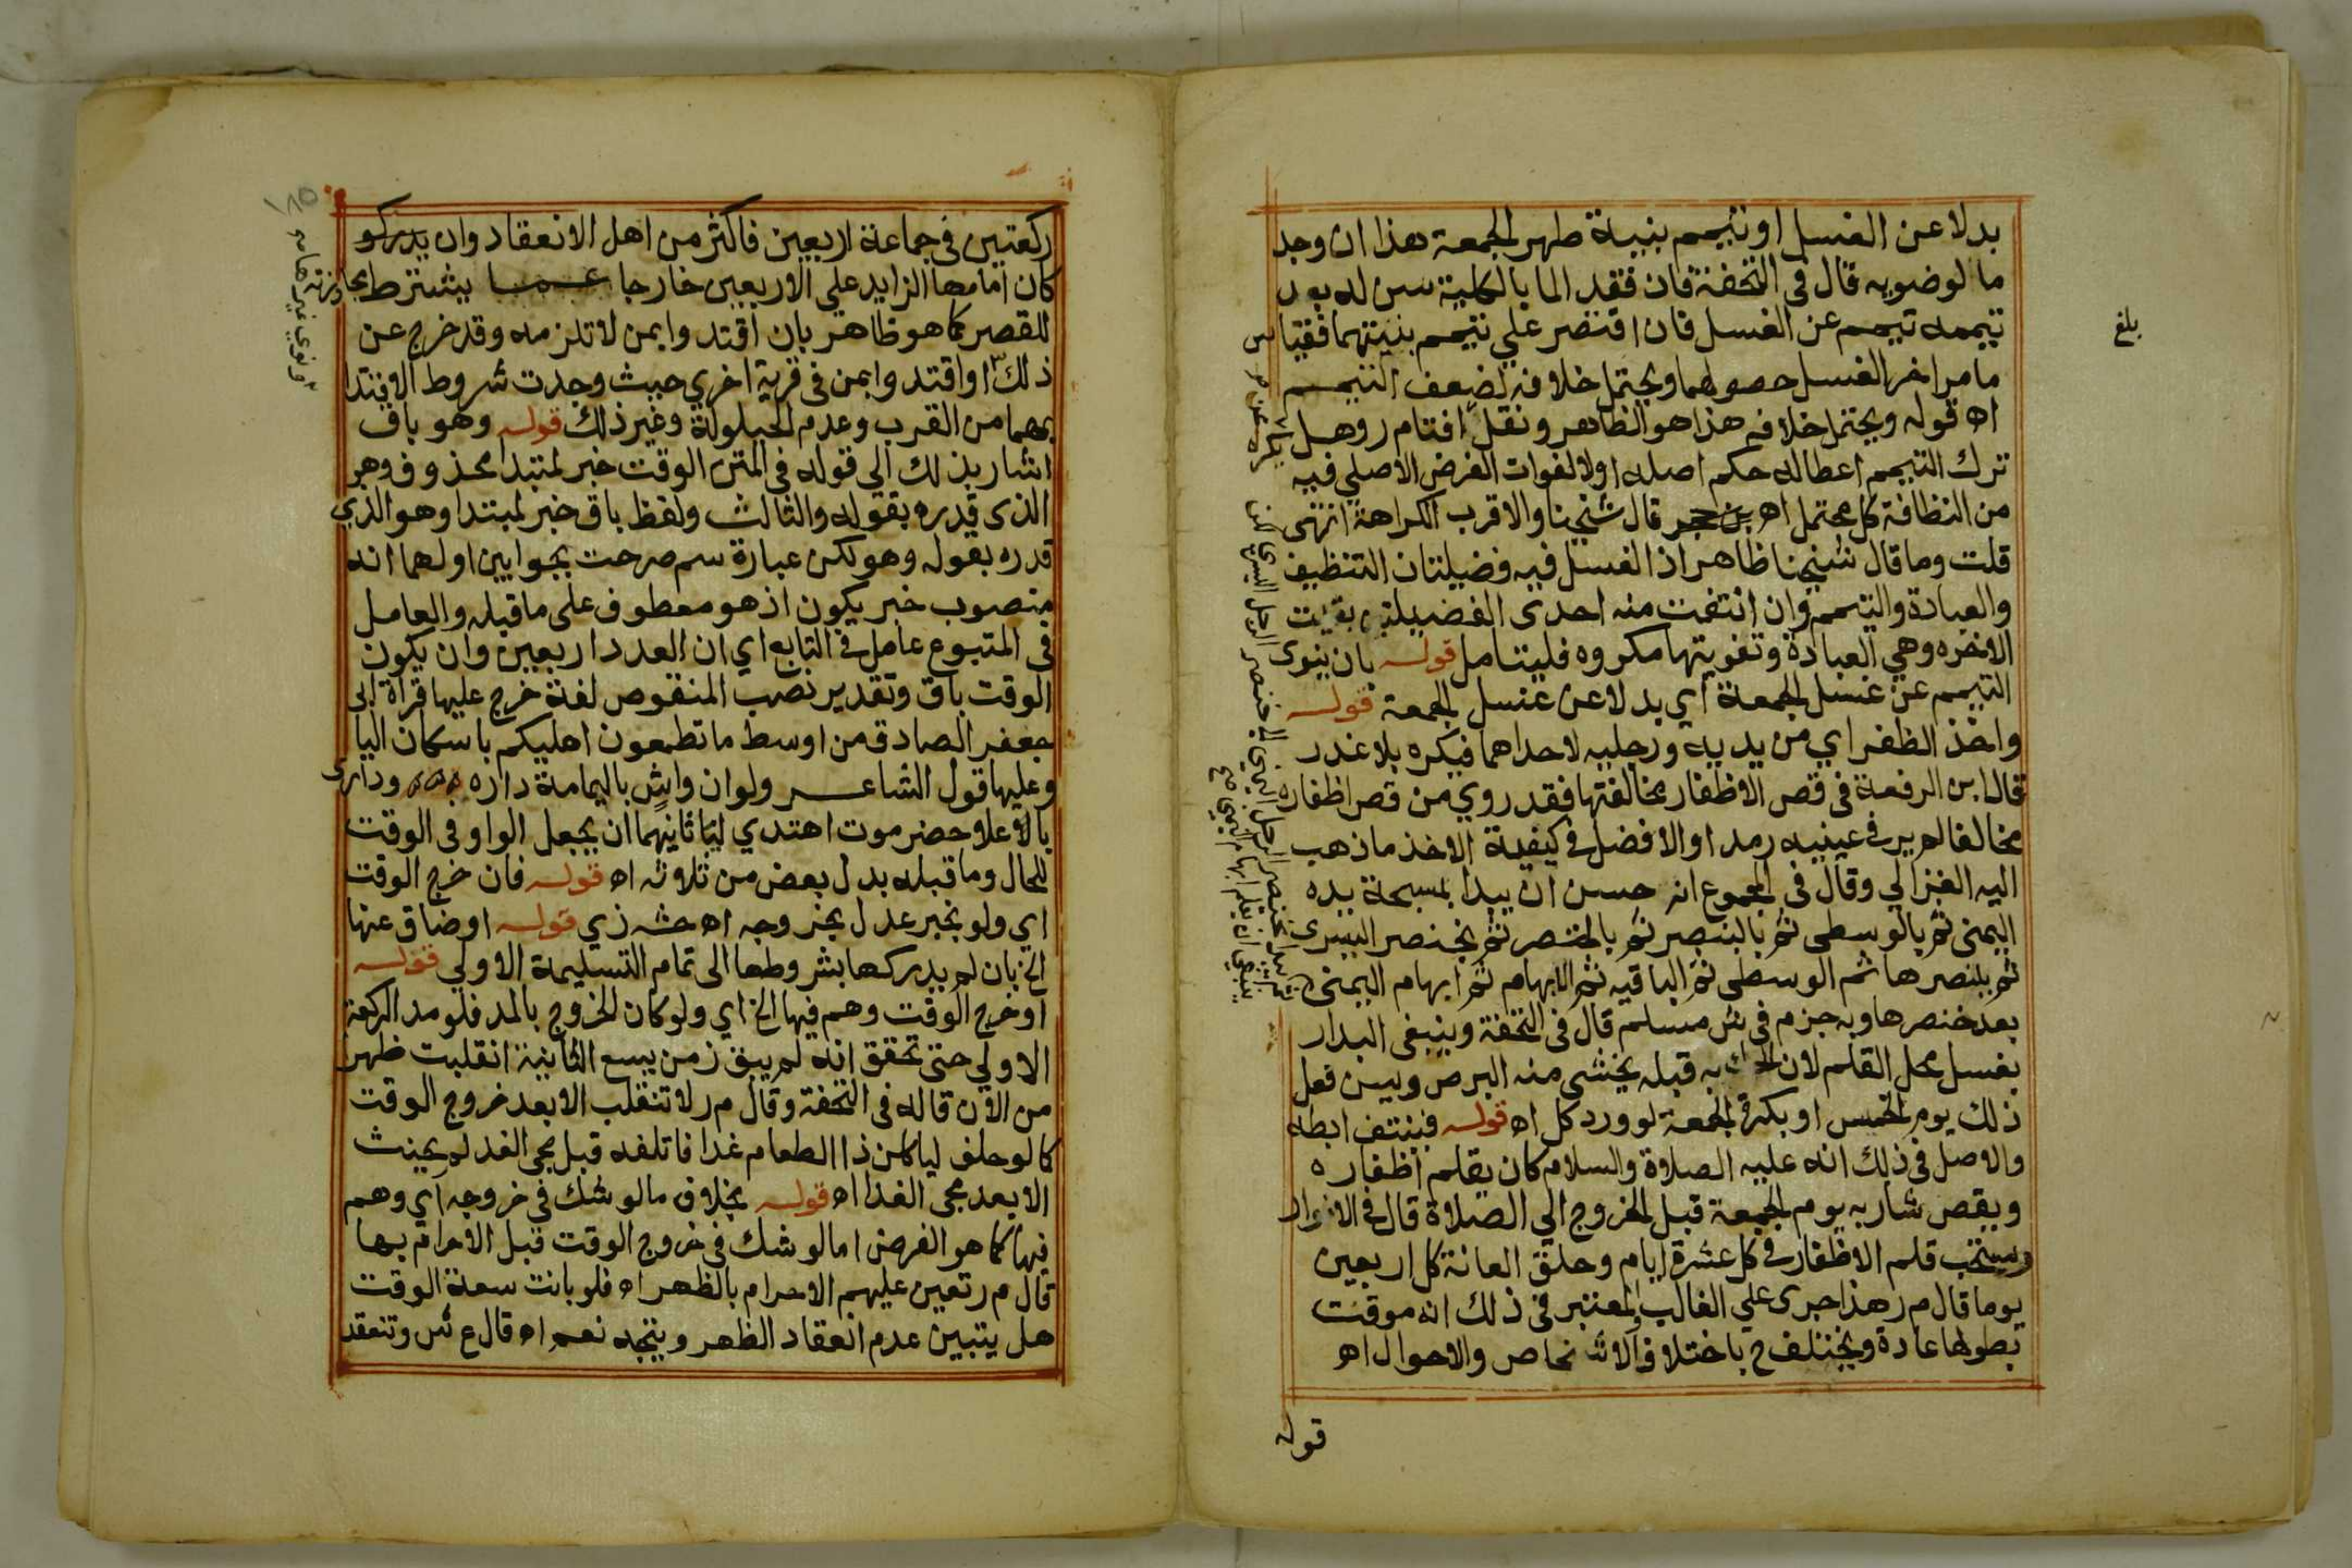 بدلا عن الغسل او تتيمم بنية طهر الجمعة هذا ان وجد
ما لوضويه قال في التحفة فان فقد الما بالكلية سن له بعد
تيممه تيمم عن الغسل فان اقتصر علي تتيمم بنيتهما فقياس
ما مر اخر الغسل حصولهما ويحتمل خلافه لضعف التيمم
اه قوله ويحتمل خلافه هذا هو الظاهر ونقل افتام ر وهل يكره
ترك التيمم اعطا له حكم اصله او لا لفوات الغرض الاصلي فيه
من النظافة كل محتمل اه بن حجر قال شيخنا والاقرب الكراهة انتهى
قلت وما قال شيخنا ظاهر اذ الغسل فيه فضيلتان التنظيف
والعبادة والتيمم وان انتفت منه احدى الفضيلتين بقيت
الاخره وهي العبادة وتفويتها مكروه فليتامل قوله بان ينوى
التيمم عن غسل الجمعة اي بدلا عن غسل الجمعة قوله
واخذ الظفر اي من يديه ورجليه لا حداهما فيكره بلا عذر
قال ابن الرفعة في قص الاظفار مخالفتها فقد روي من قص اظفاره
مخالفا لم ير في عينيه رمدا والافضل في كيفية الاخذ ما ذهب
اليه الغزالي وقال في المجموع انه حسن ان يبدا بمسبحة يده
اليمنى ثم بالوسطى ثم بالبنصر ثم بالخنصر ثم بخنصر اليسرى
ثم ببنصرها ثم الوسطى ثم الباقيه ثم الابهام ثم ابهام اليمنى
بعد خنصرها وبه جزم في ش مسلم قال في التحفة وينبغي البدار
بغسل محل القلم لان الحك به قبله يخشى منه البرص ويسن فعل
ذلك يوم الخميس او بكرة الجمعة لورود كل اه قوله فينتف ابطه
والاصل في ذلك انه عليه الصلاة والسلام كان يقلم اظفاره
ويقص شاربه يوم الجمعة قبل الخروج الي الصلاة قال في الانوار
ويستحب قلم الاظفار في كل عشرة ايام وحلق العانة كل اربعين
يوما قال م ر هذا جرى علي الغالب والمعتبر في ذلك انه موقت
بطولها عادة ويختلف ح باختلاف الاشخاص والاحوال اه
قوله
بلغ
ركعتين في جماعة اربعين فاكثر من اهل الانعقاد وان يدركو
كان امامها الزايد علي الاربعين خارجا عنها يشترط مجاوزته
للقصر كما هو ظاهر بان اقتدوا بمن لا تلزمه وقد خرج عن
ذلك او اقتدوا بمن في قرية اخري حيث وجدت شروط الاقتدا
بهما من القرب وعدم الحيلولة وغير ذلك قوله وهو باق
اشار بذلك الي قوله في المتن الوقت خبر لمبتدا محذوف وهو
الذى قدره بقوله والثالث ولفظ باق خبر لمبتدا وهو الذي
قدره بقوله وهو لكن عبارة سم صرحت بجوابين اولهما انه
منصوب خبر يكون اذ هو معطوف على ما قبله والعامل
في المتبوع عامل في التابع اي ان العدد اربعين وان يكون
الوقت باق وتقدير نصب المنقوص لغة خرج عليها قراة ابي
جعفر الصادق من اوسط ما تطعمون اهليكم باسكان اليا
وعليها قول الشاعر ولو ان واش باليمامة داره ودارى
بالاعلا حضرموت اهتدي ليا ثانيهما ان يجعل الواو في الوقت
للحال وما قبله بدل بعض من ثلاثه اه قوله فان خرج الوقت
اي ولو بخبر عدل بخروجه اه حش زي قوله او ضاق عنها
الخ بان لم يدركها بشروطها الى تمام التسليمة الاولي قوله
او خرج الوقت وهم فيها الخ اي ولو كان الخروج بالمد فلو مد الركعة
الاولي حتى تحقق انه لم يبق زمن يسع الثانية انقلبت ظهرا
من الآن قاله في التحفة وقال م ر لا تنقلب الا بعد خروج الوقت
كما لو حلف لياكلن ذا الطعام غدا فاتلفه قبل مجي الغد لم يحنث
الا بعد مجى الغد اه قوله بخلاف ما لو شك في خروجه اي وهم
فيها كما هو الفرض اما لو شك في خروج الوقت قبل الاحرام بها
قال م ر تعين عليهم الاحرام بالظهر اه فلو بانت سعة الوقت
هل يتبين عدم انعقاد الظهر ويتجه نعم اه قال ع ش وتنعقد